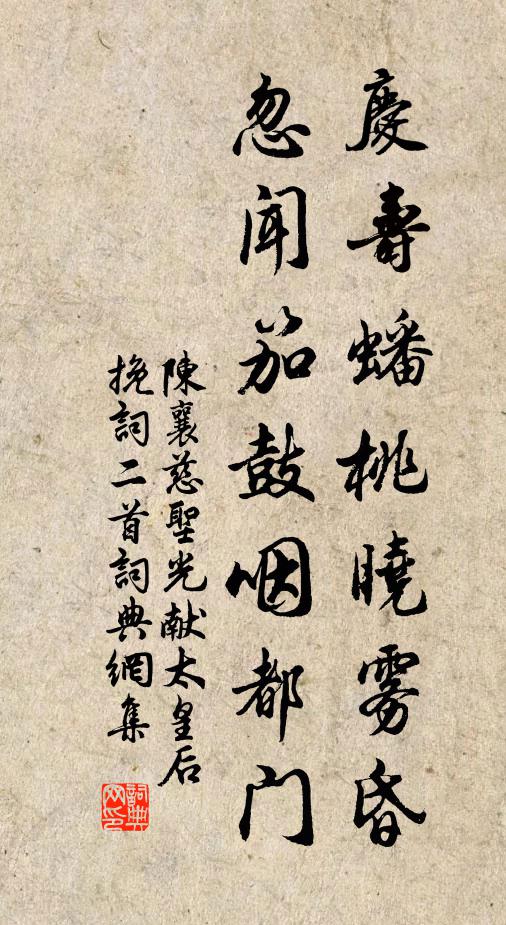 慶壽蟠桃曉霧昏
忽聞笳鼓咽都門
陳襄慈聖光献太皇后
挽詞二首詞典網集
詞典
网印